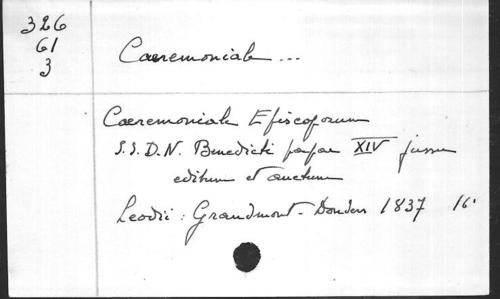 326
61
3
Caeremoniale ...
Caeremoniale Episcoporum
S.S.D.N. Benedicti papae XIV jussu
editum et auctum
Leodii : Grandmont-Donders 1837 16°